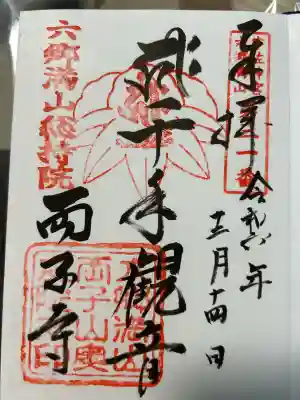 奉拝
令和六年
十二月十四日
千手觀音
六郷満山総持院
両子寺
六郷満山
両子山奥